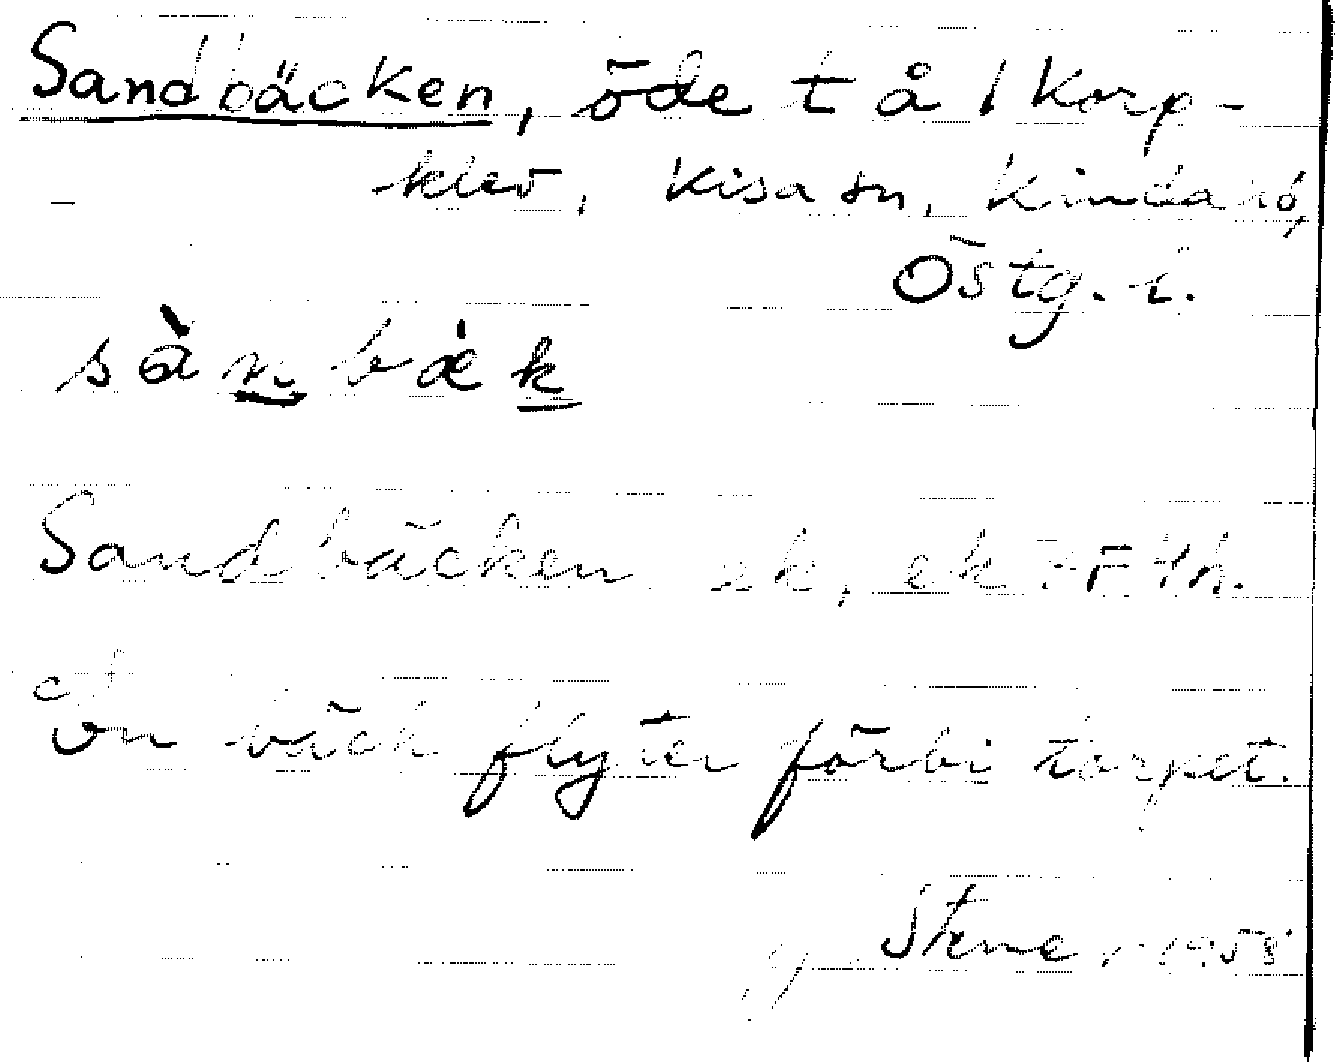 Sandbäcken, öde t å 1 Korp-
klev, Kisa sn, Kinda hd,
Östg. l.
sànbæk
Sandbäcken ek, ek
En bäck flyter förbi torpet.
1958